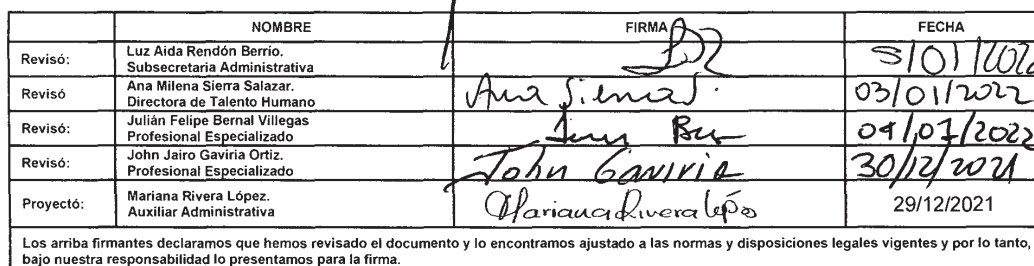 NOMBRE FIRMA FECHA
Revisó: Luz Aida Rendón Berrío.
Subsecretaria Administrativa
Revisó Ana Milena Sierra Salazar.
Directora de Talento Humano Ana Sierra S. 03/01/2022
Revisó: Julián Felipe Bernal Villegas
Profesional Especializado 04/01/2022
Revisó: John Jairo Gaviria Ortiz.
Profesional Especializado John Gaviria 30/12/2021
Proyectó: Mariana Rivera López.
Auxiliar Administrativa Mariana Rivera López 29/12/2021
Los arriba firmantes declaramos que hemos revisado el documento y lo encontramos ajustado a las normas y disposiciones legales vigentes y por lo tanto,
bajo nuestra responsabilidad lo presentamos para la firma.